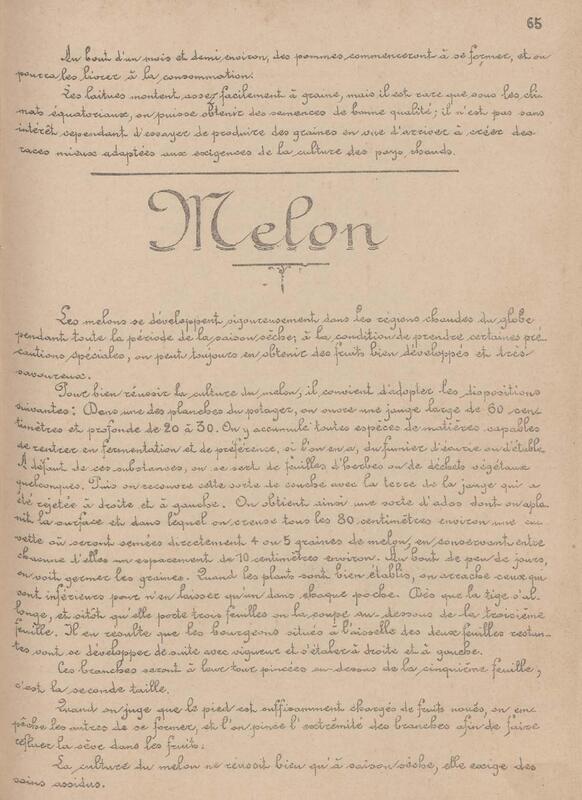 65
Au bout d'un mois et demi environ, des pommes commenceront à se former, et on
pourra les livrer à la consommation.
Les laitues montent assez facilement à graine, mais il est rare que sous les cli-
mats équatoriaux, on puisse obtenir des semences de bonne qualité; il n'est pas sans
intérêt cependant d'essayer de produire des graines en vue d'arriver à créer des
races mieux adaptées aux exigences de la culture des pays chauds.
Melon
Les melons se développent vigoureusement dans les régions chaudes du globe
pendant toute la période de la saison sèche; à la condition de prendre certaines pré-
cautions spéciales, on peut toujours en obtenir des fruits bien développés et très
savoureux.
Pour bien réussir la culture du melon, il convient d'adopter les dispositions
suivantes: Dans une des planches du potager, on ouvre une jauge large de 60 cen-
timètres et profonde de 20 à 30. On y accumule toutes espèces de matières capables
de rentrer en fermentation et de préférence, si l'on en a, du fumier d'écurie ou d'étable.
A défaut de ces substances, on se sert de feuilles d'herbes ou de déchets végétaux
quelconques. Puis on recouvre cette sorte de couche avec la terre de la jauge qui a
été rejetée à droite et à gauche. On obtient ainsi une sorte d'ados dont on apla-
nit la surface et dans lequel on creuse tous les 80 centimètres environ une cu-
vette où seront semées directement 4 ou 5 graines de melon, en conservant entre
chacune d'elles un espacement de 10 centimètres environ. Au bout de peu de jours,
on voit germer les graines. Quand les plants sont bien établis, on arrache ceux qui
sont inférieurs pour n'en laisser qu'un dans chaque poche. Dès que la tige s'al-
longe, et sitôt qu'elle porte trois feuilles on la coupe au-dessous de la troisième
feuille. Il en résulte que les bourgeons situés à l'aisselle des deux feuilles restan-
tes vont se développer de suite avec vigueur et s'étaler à droite et à gauche.
Ces branches seront à leur tour pincées au-dessus de la cinquième feuille;
c'est la seconde taille.
Quand on juge que le pied est suffisamment chargés de fruits noués, on em-
pêche les autres de se former, et l'on pince l'extrémité des branches afin de faire
refluer la sève dans les fruits.
La culture du melon ne réussit bien qu'à saison sèche, elle exige des
soins assidus.